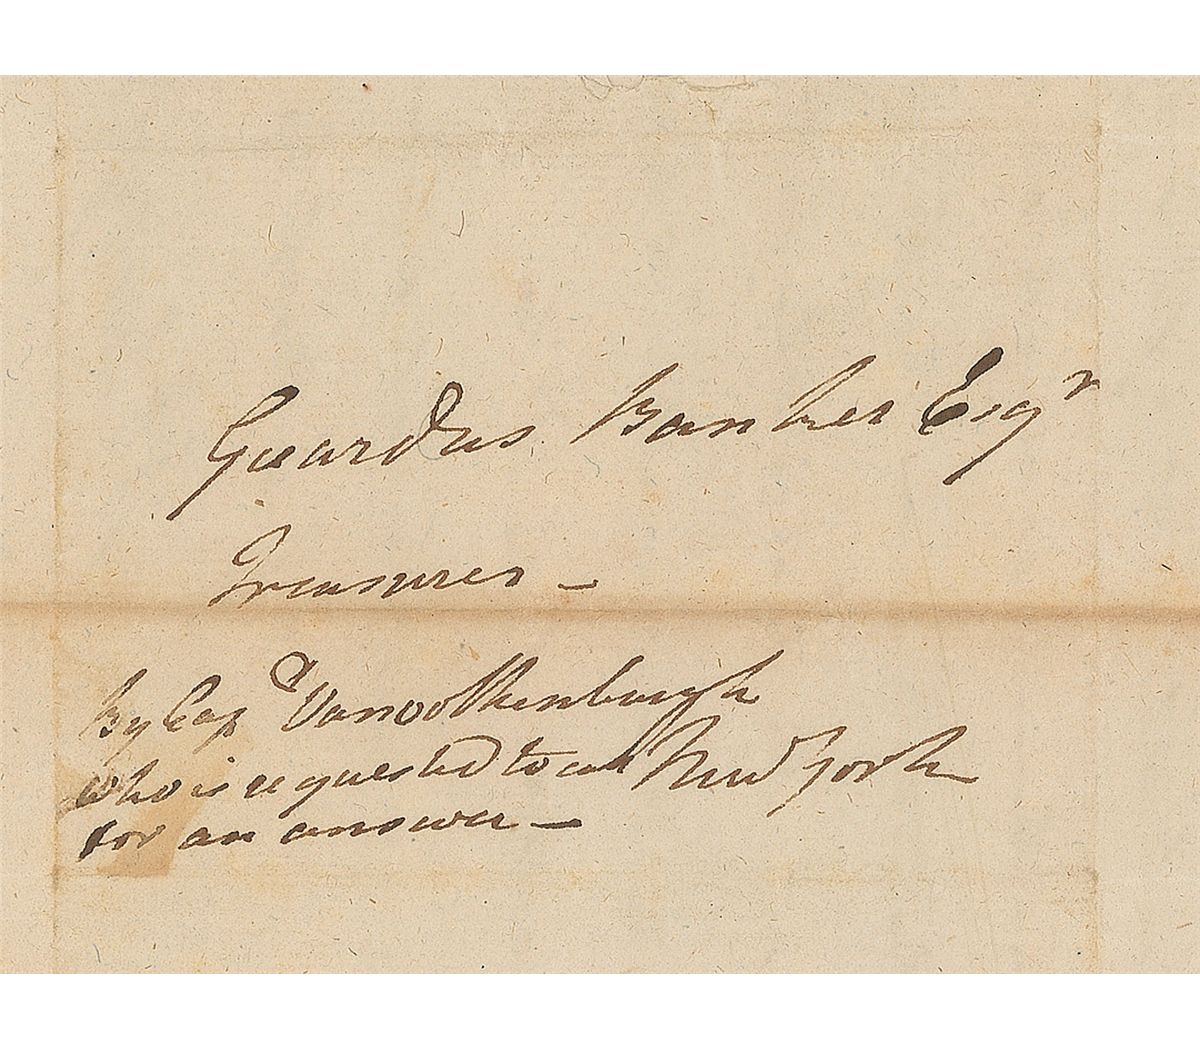 Gerardus Bancker Esqr
Treasurer –
By Cap Vanvolkenburgh
who is requested to call
for an answer –
New York